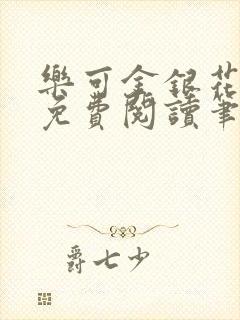 樂可金銀花
免費閱讀筆
爵七少